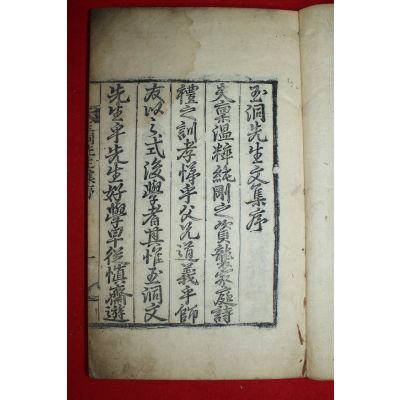 玉洞先生文集序
天稟溫粹純剛之資襲家庭詩
禮之訓孝悌乎父兄道義乎師
友以式後學者其惟玉洞文
先生乎先生好學早從愼齋遊